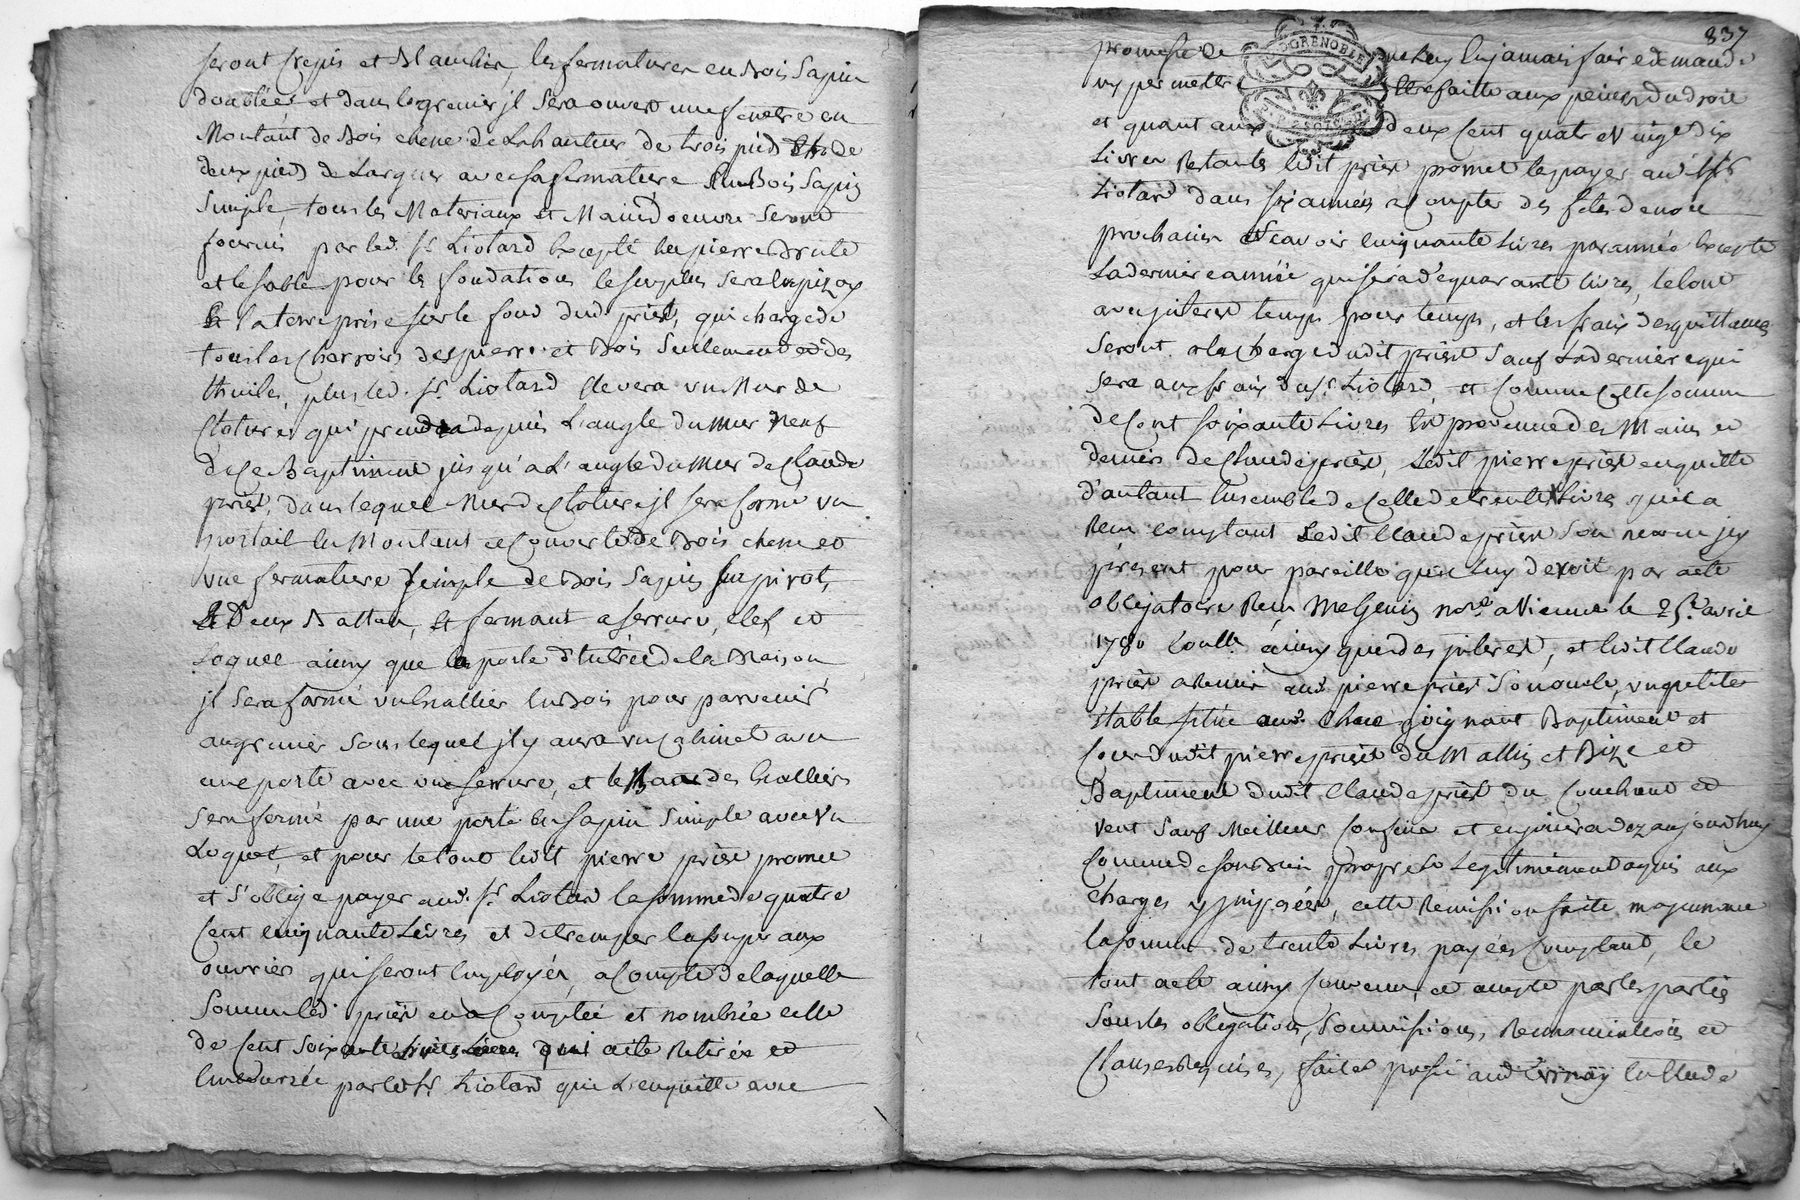 seront Crepis et Blanchis, les fermatures en Bois Sapin
doublées et dans le grenier jl Sera ouvert une fenetre en
Montant de Bois chene de la hauteur de trois pied et de
deux pied de Largeur avec sa fermature en Bois Sapin
Simple, tous les Materiaux et Maind'oeuvre Seront
fournis par led. Sr Liotard Excepté les pierre Brute
et le sable pour les fondations le surplus Sera en pizay
la terre prise sur le fond dud prier, qui charge de
tous les Charrois des pierre et Bois Seulement et des
thuiles, plus led. Sr Liotard Elevera un Mur de
Cloture qui prendra depuis L'angle du mur Neuf
de Ce Baptiment jusqu'a L'angle du Mur de Claude
prier, dans lequel Mur de Cloture jl sera formé un
portail en Montant et Couverte de Bois chene et
une fermature simple de Bois Sapin sur pivots,
a Deux Battan, et fermant a serrure, clef et
Loquet ainsy que la porte d'Entrée de la Maison
jl Sera formé un Escallier en Bois pour parvenir
au grenier Sous lequel jl y aura un Cabinet avec
une porte avec une serrure, et le Bas des Escalliers
Sera fermé par une porte en Sapin Simple avec un
Loquet, et pour le tout ledit pierre prier promet
et S'oblige payer aud. Sr Liotard la somme de quatre
Cent Cinquante Livres et de tremper la soupe aux
ouvriers qui seront Employés, a Compte de laquelle
Somme led. prier en a Comptée et nombrée celle
de Cent Soixante Livres qui a été Retirée et
Emboursée par led Sr Liotard qui L'en quitte avec
837
promesse de ne luy En jamais faire demande
ny permettre Etre faitte aux peines du droit
et quant aux deux Cent quatre Vingt dix
Livres Restantes ledit prier promet les payer aud Sr
Liotard dans six années a Compter des fetes de noel
prochaines a Scavoir Cinquante Livres par année Excepté
La derniere année qui sera de quarante livres, le tout
avec jnteret temps pour temps, et les fraix des quittances
Seront a la charge dudit prier Sauf La derniere qui
sera aux fraix du Sr Liotard, et Comme Cette somme
de Cent soixante Livres Est provenue des Mains et
deniers de Claude prier, Ledit pierre prier en quitte
d'autant Ensemble de Celle de trente Livres qu'il a
Reçu comptant Ledit Claude prier Son neveu jcy
présent pour pareille qu'il luy devoit par acte
obligatoire Reçu Me Genin nore a Vienne le 25 avril
1780 Coullé ainsy que des jnteret, et ledit Claude
prier a Remis aud pierre prier Son oncle, une petite
Etable située aud. Lieu joignant Baptiment et
Cour dudit pierre prier du Matin et Bize et
Baptiment dudit Claude prier du Couchant et
Vent Sauf Meilleurs Confins et en jouira dez aujourd'huy
Comme de son Bien propre et Legitimement aquis aux
charges y jmposées, cette Remission faite moyennant
la somme de trente Livres payées Comptant, le
tout acte ainsy Convenu et accepté par les parties
Sous les obligations, Soumissions, Renonciations et
Clauses Requises, fait et passé aud Erinay En l'Etude